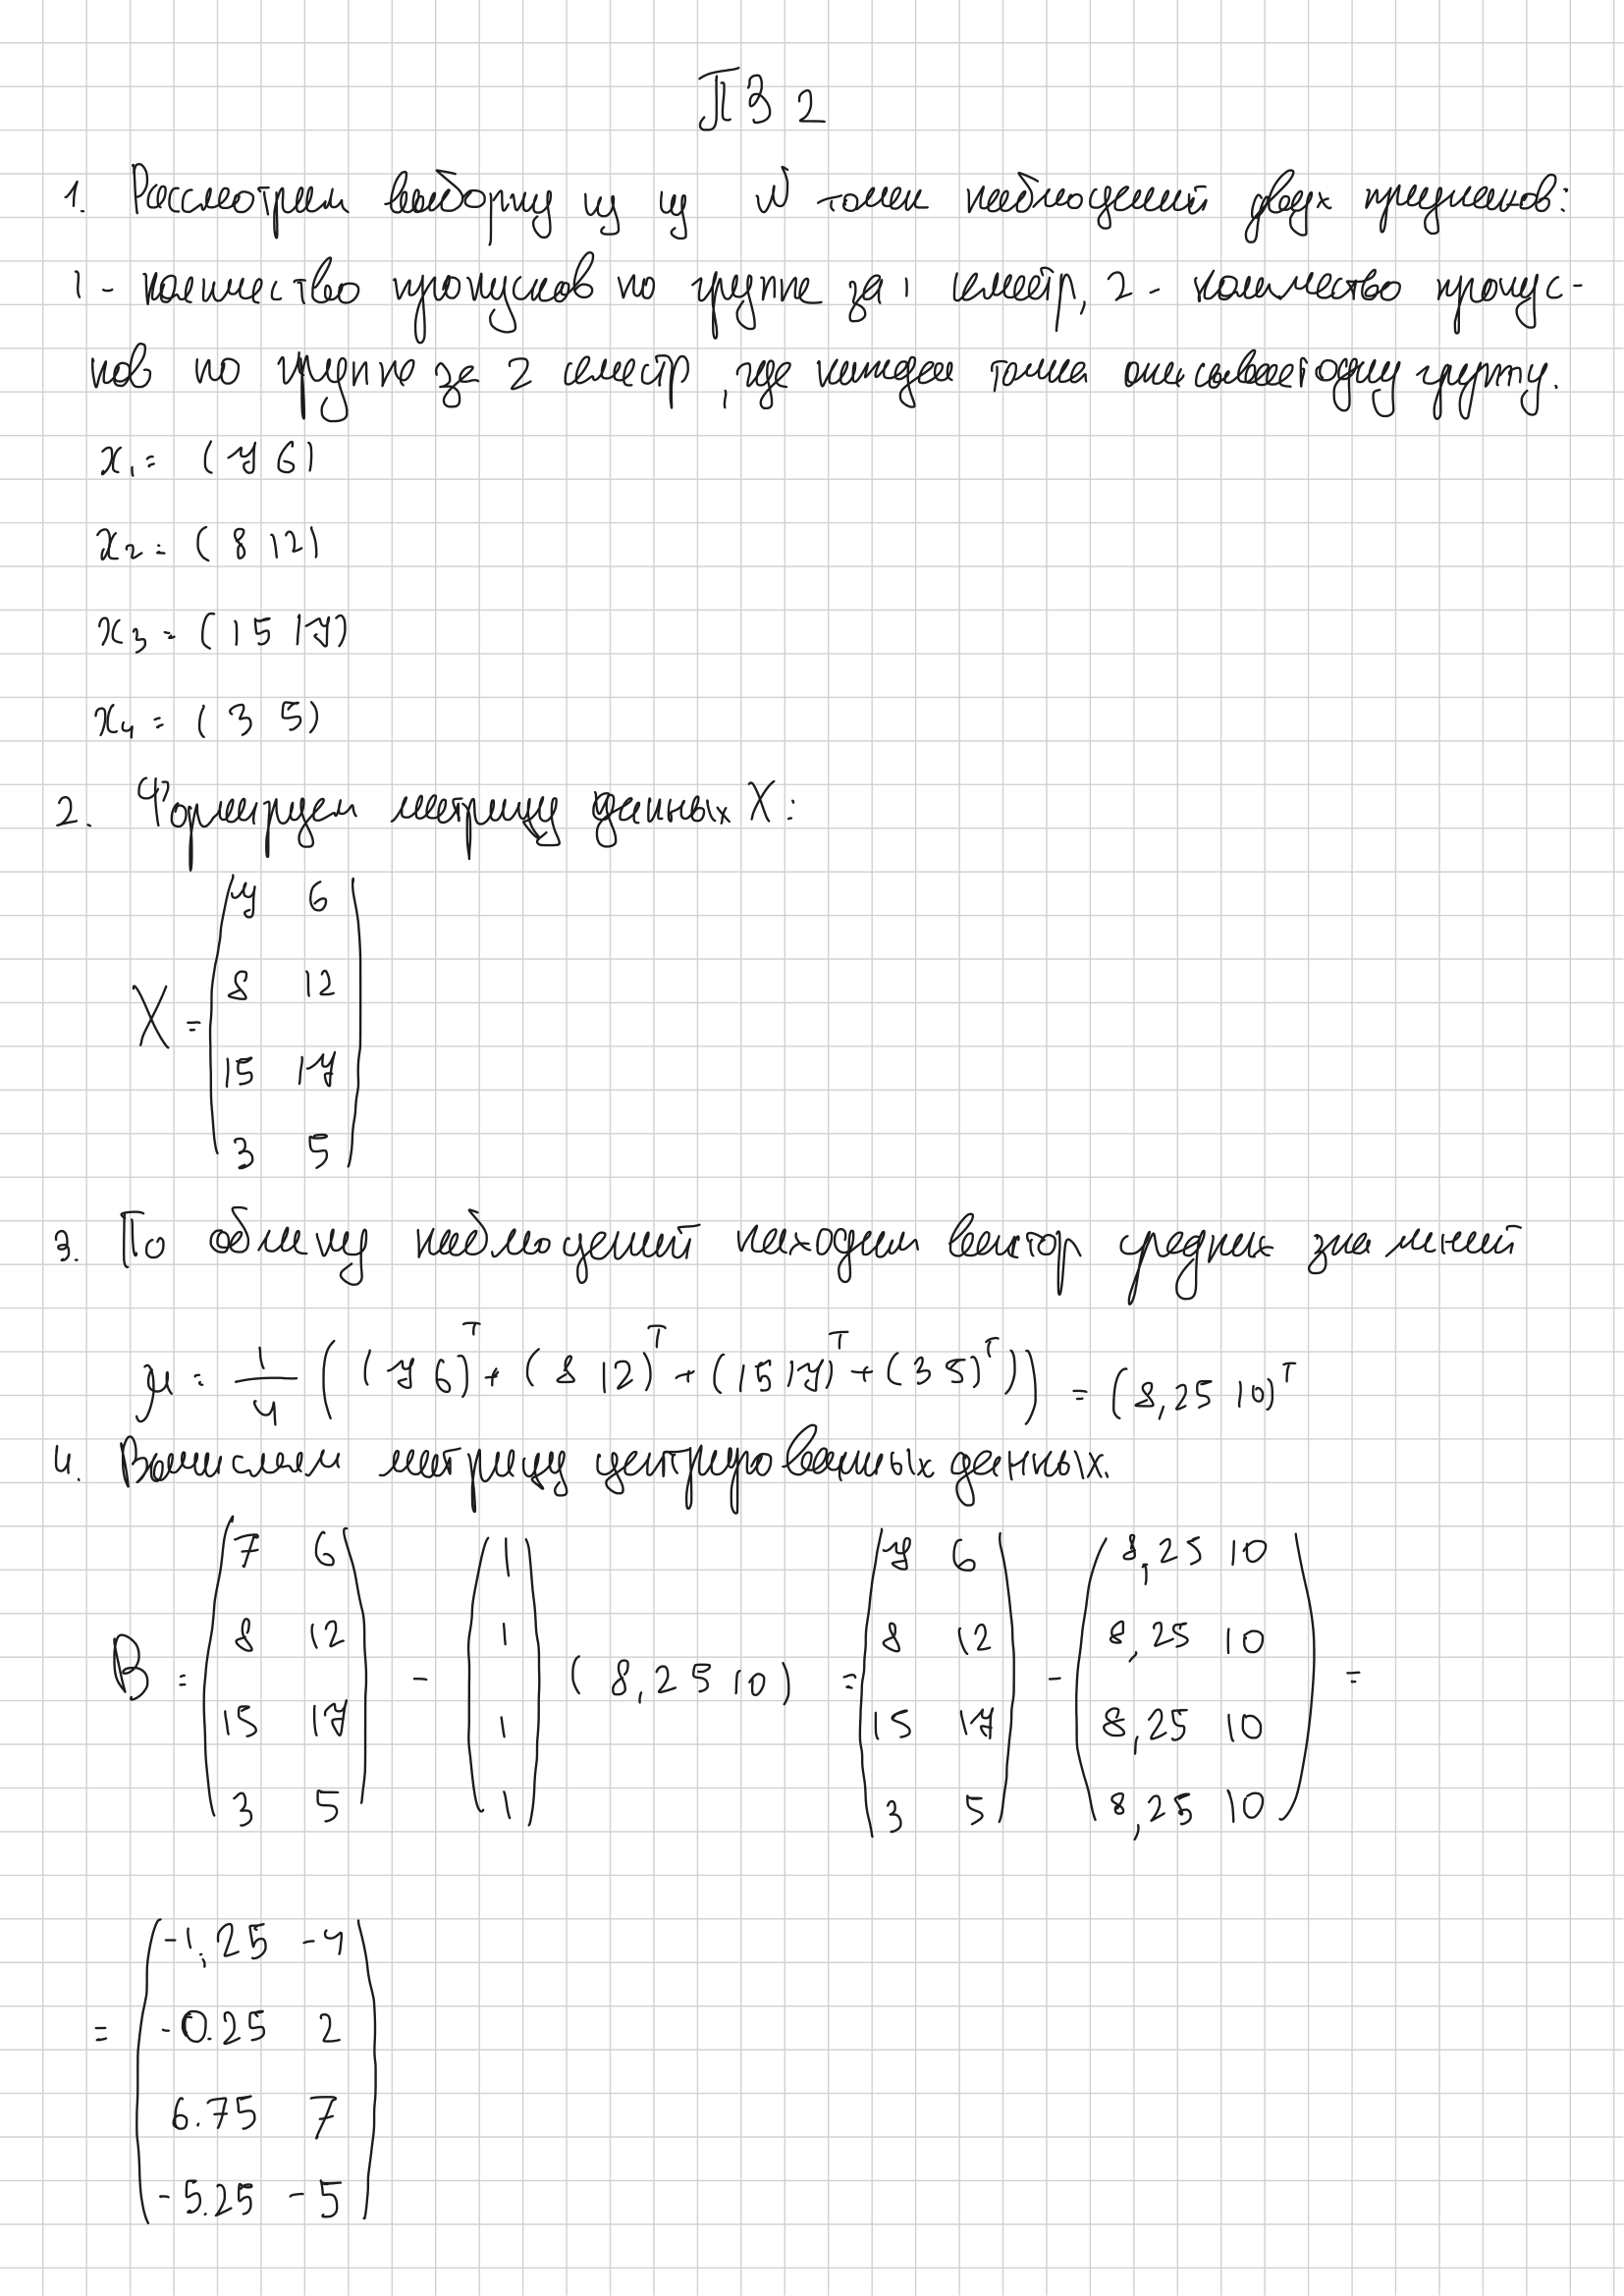 ПЗ 2
1. Рассмотрим выборку из из N точек наблюдений двух признаков:
1 - количество пропусков по группе за 1 семестр, 2 - количество пропус-
ков по группе за 2 семестр, где каждая точка описывает одну группу.
x₁ = (7 6)
x₂ = (8 12)
x₃ = (15 17)
x₄ = (3 5)
2. Формируем матрицу данных X:
7 6
8 12
X =
15 17
3 5
3. По облику наблюдений находим вектор средних значений
μ = 1/4 ((7 6)ᵀ + (8 12)ᵀ + (15 17)ᵀ + (3 5)ᵀ)) = (8,25 10)ᵀ
4. Вычисляем матрицу центрированных данных.
7 6 1 7 6 8,25 10
8 12 1 8 12 8,25 10
B = - (8,25 10) = - =
15 17 1 15 17 8,25 10
3 5 1 3 5 8,25 10
-1,25 -4
= -0.25 2
6.75 7
-5.25 -5